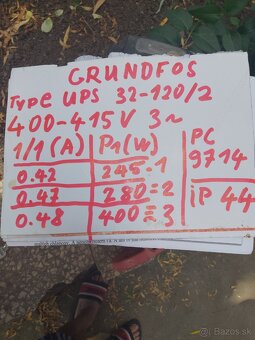 GRUNDFOS
TYPE UPS 32-120/2
400-415V 3~
1/1 (A) P1(W) PC
0.42 245=1 9714
0.47 280=2 IP 44
0.48 400=3
Bazos.sk